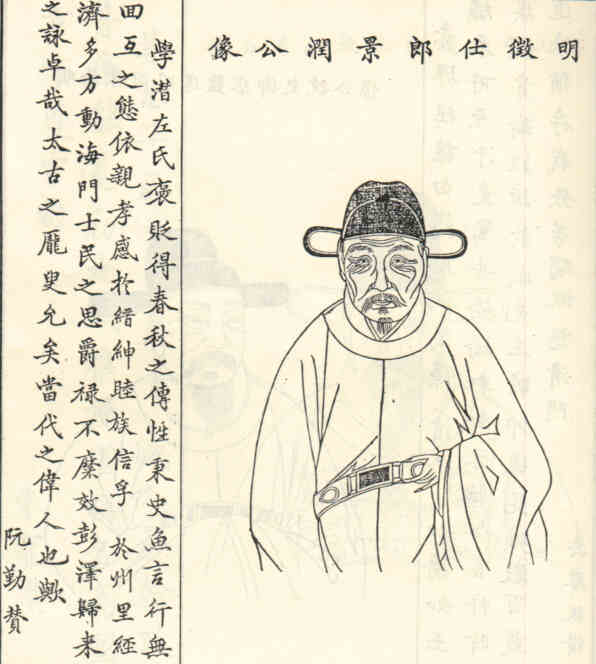 明徵仕郎景潤公像
學潛左氏褒貶得春秋之傳性秉史魚言行無
回互之態依親孝感於縉紳睦族信孚於州里經
濟多方動海門士民之思爵禄不縻效彭澤歸来
之詠卓哉太古之龐叟允矣當代之偉人也歟
阮勤贊